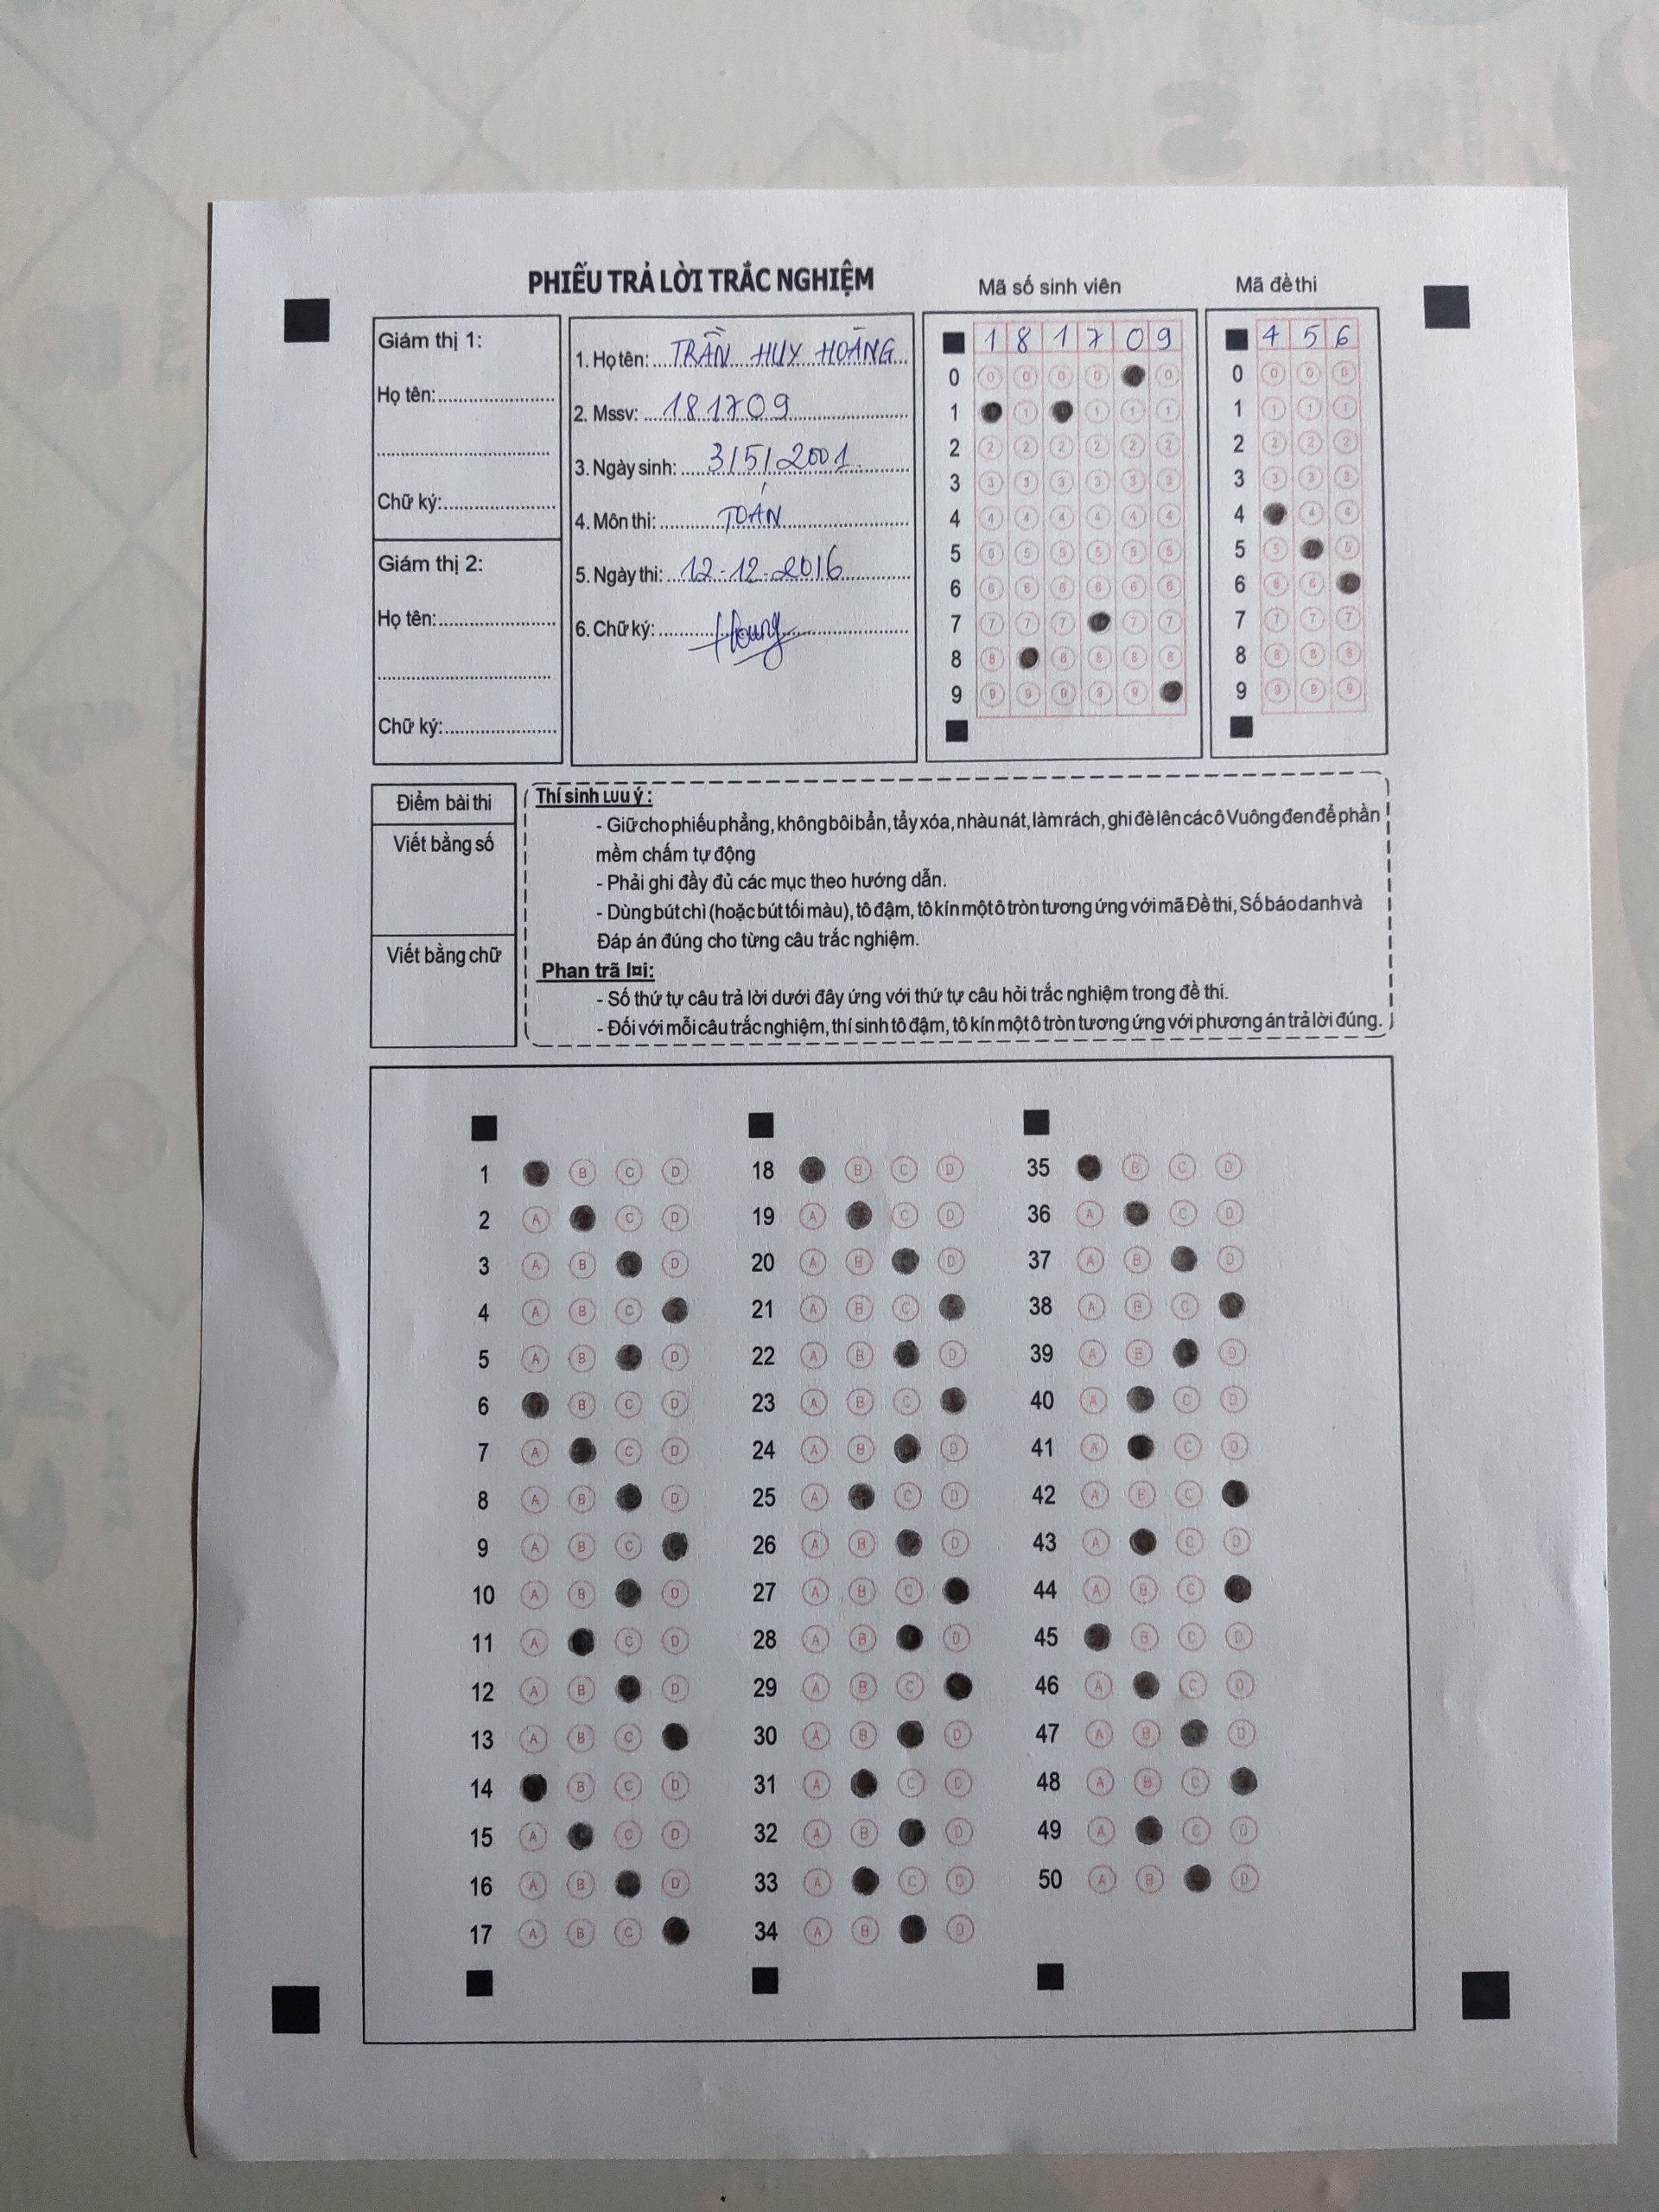 PHIẾU TRẢ LỜI TRẮC NGHIỆM
Mã số sinh viên
Mã đề thi
Giám thị 1:
Họ tên:
Chữ ký:
Giám thị 2:
Họ tên:
Chữ ký:
1. Họ tên: TRẦN HUY HOÀNG
2. Mssv: 181709
3. Ngày sinh: 3/5/2001
4. Môn thi: TOÁN
5. Ngày thi: 12-12-2016
6. Chữ ký:
1 8 1 7 0 9
0 0 0 0 0 0
1 1 1 1 1
2 2 2 2 2 2 2
3 3 3 3 3 3 3
4 4 4 4 4 4 4
5 5 5 5 5 5 5
6 6 6 6 6 6 6
7 7 7 7 7 7
8 8 8 8 8 8
9 9 9 9 9 9
4 5 6
0 0 0 0
1 1 1 1
2 2 2 2
3 3 3 3
4 4 4
5 5 5
6 6 6
7 7 7 7
8 8 8 8
9 9 9 9
Điểm bài thi
Viết bằng số
Viết bằng chữ
Thí sinh Lưu ý :
- Giữ cho phiếu phẳng, không bôi bẩn, tẩy xóa, nhàu nát, làm rách, ghi đè lên các ô Vuông đen để phần
mềm chấm tự động
- Phải ghi đầy đủ các mục theo hướng dẫn.
- Dùng bút chì (hoặc bút tối màu), tô đậm, tô kín một ô tròn tương ứng với mã Đề thi, Số báo danh và
Đáp án đúng cho từng câu trắc nghiệm.
Phan trã l¤i:
- Số thứ tự câu trả lời dưới đây ứng với thứ tự câu hỏi trắc nghiệm trong đề thi.
- Đối với mỗi câu trắc nghiệm, thí sinh tô đậm, tô kín một ô tròn tương ứng với phương án trả lời đúng.
1 B C D
2 A C D
3 A B D
4 A B C
5 A B D
6 B C D
7 A C D
8 A B D
9 A B C
10 A B D
11 A C D
12 A B D
13 A B C
14 B C D
15 A C D
16 A B D
17 A B C
18 B C D
19 A C D
20 A B D
21 A B C
22 A B D
23 A B C
24 A B D
25 A C D
26 A B D
27 A B C
28 A B D
29 A B C
30 A B D
31 A C D
32 A B D
33 A C D
34 A B D
35 B C D
36 A C D
37 A B D
38 A B C
39 A B D
40 A C D
41 A C D
42 A B C
43 A C D
44 A B C
45 B C D
46 A C D
47 A B D
48 A B C
49 A C D
50 A B D